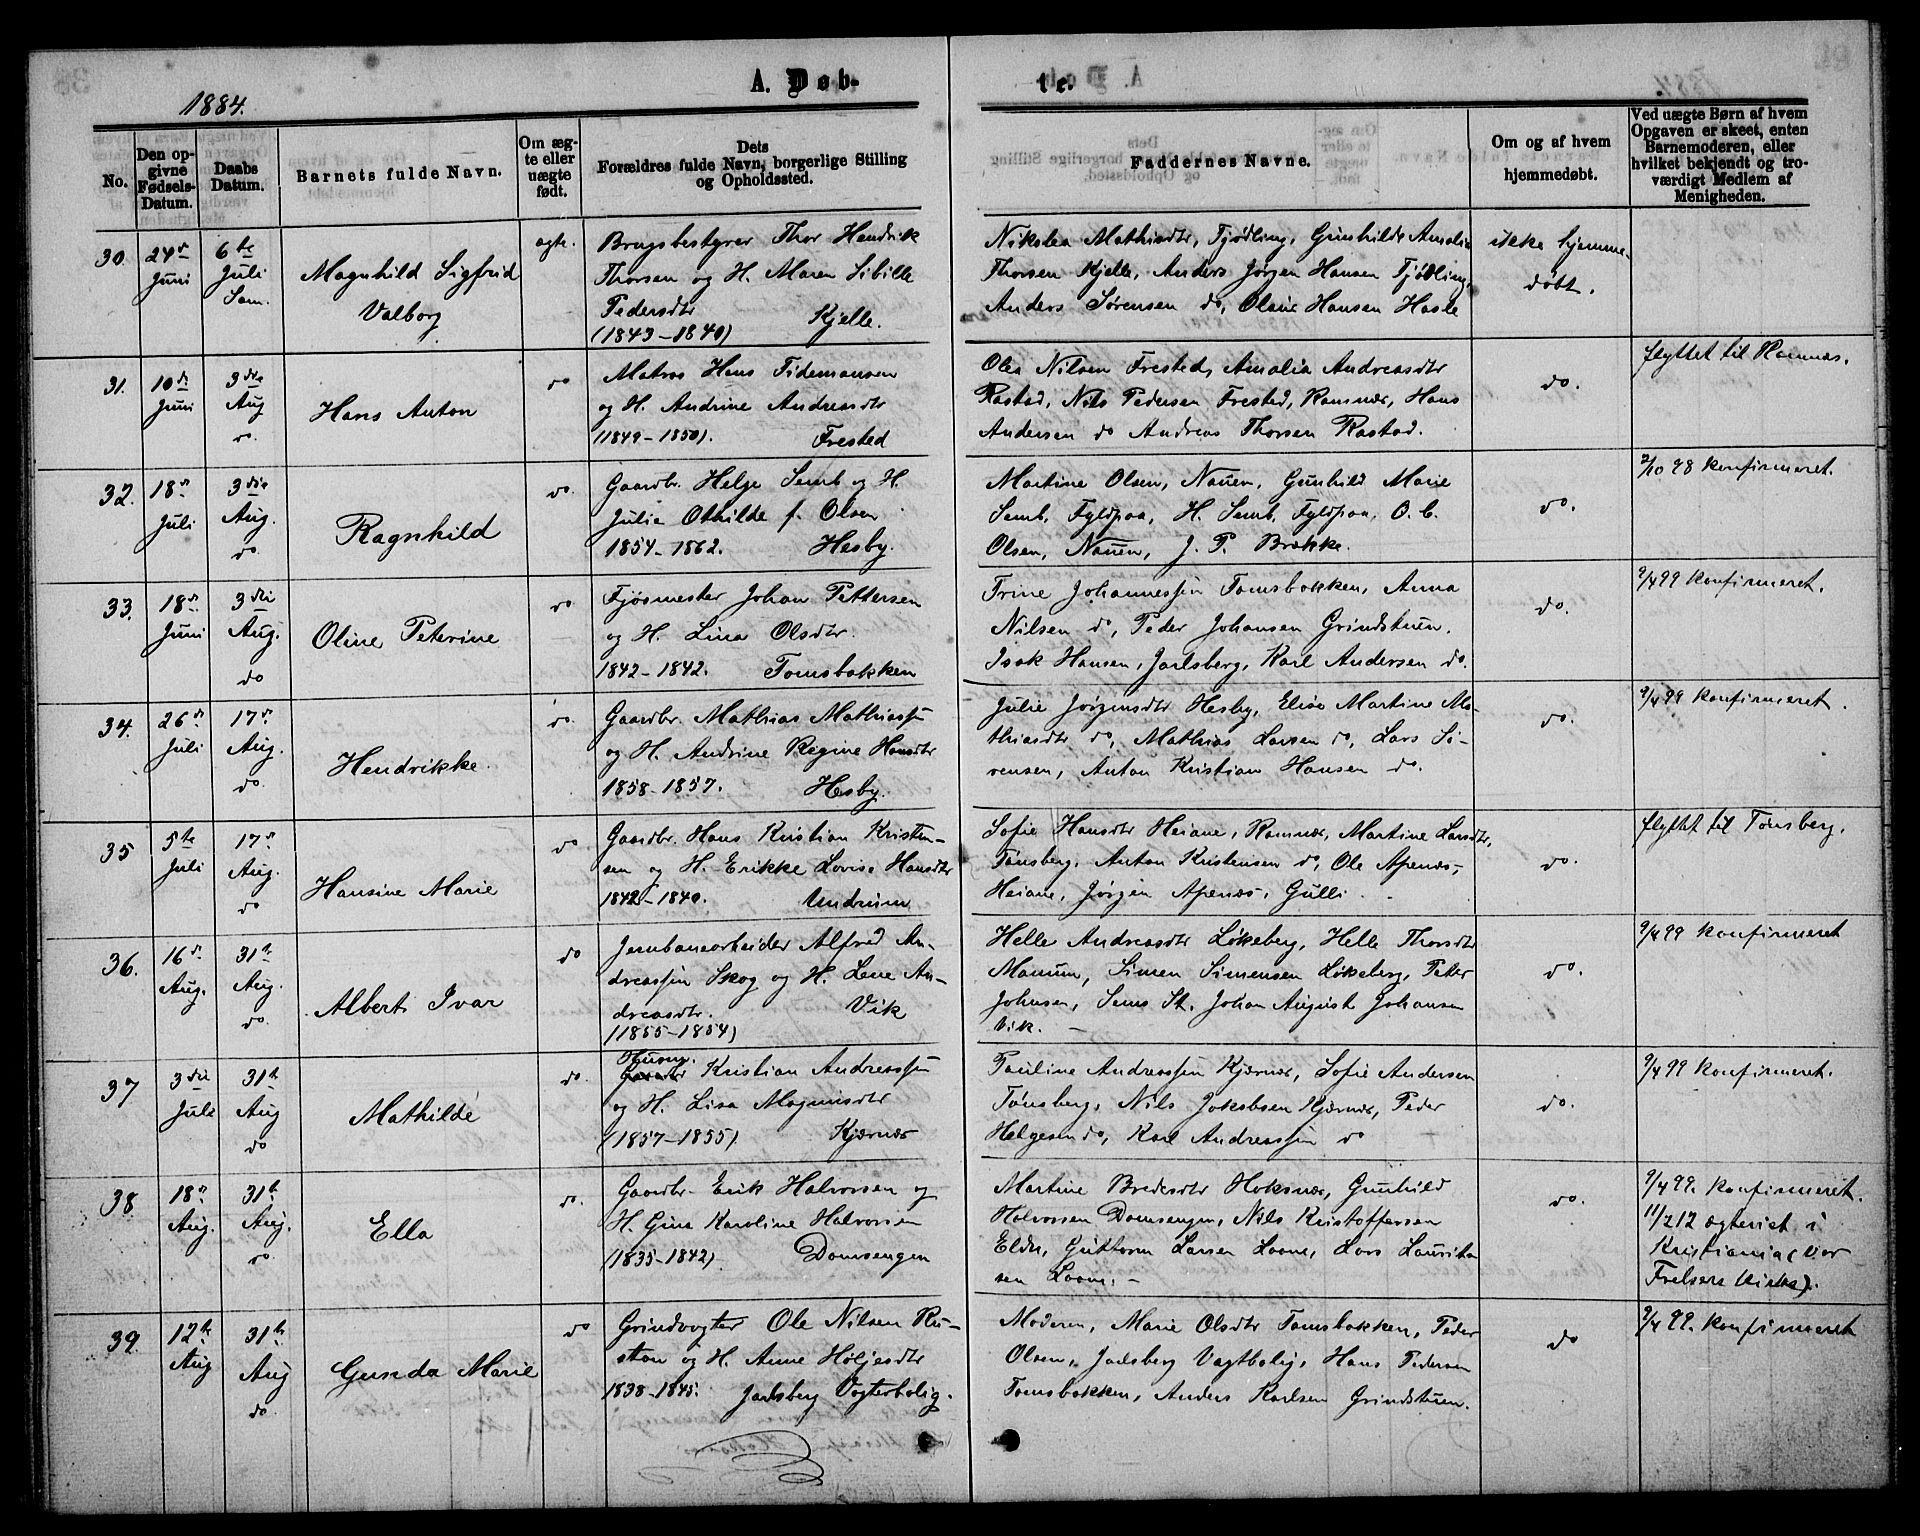 1884.
A. Døb-
te.
No.
Den op-
givne
Fødsels-
Datum.
Daabs
Datum.
Barnets fulde Navn.
Om æg-
te eller
uægte
født.
Dets
Forældres fulde Navn, borgerlige Stilling
og Opholdssted.
Faddernes Navne.
Om og af hvem
hjemmedøbt.
Ved uægte Børn af hvem
Opgaven er skeet, enten
Barnemoderen, eller
hvilket bekjendt og tro-
værdigt Medlem af
Menigheden.
30.
24de
Juni
6te
Juli
Sem.
Magnhild Sigfrid
Valborg
ægte.
Brugsbestyrer Thor Hendrik
Thorsen og H. Maren Sibille
Pedersdtr
(1843-1840) Kjelle.
Nikolea Mathisdtr, Tjødling, Gunhilde Amalia
Thorsen Kjelle, Anders Jørgen Hansen Tjødling,
Anders Sørensen do, Olave Hansen Hasle
ikke hjemme-
døbt.
31.
10de
Juni
3die
Aug
do.
Hans Anton
do
Matros Hans Tidemansen
og H. Andrine Andreasdtr
(1849-1850). Frested
Olea Nilsen Frested, Amalia Andreasdtr
Rastad, Nils Pedersen Frested, Ramnæs, Hans
Andersen do Andreas Thorsen Rastad.
do.
flyttet til Ramnæs.
32.
18de
Juli
3die
Aug.
do.
Ragnhild
do.
Gaardbr. Helge Semb og H.
Julia Othilde f. Olsen
1854-1862. Hesby.
Martine Olsen, Nauen, Gunhild Marie
Semb, Fyldpaa, H. Semb, Fyldpaa, O. C.
Olsen, Nauen, J. P. Brække.
do.
2/10 98 konfirmeret.
33.
18de
Juni
3die
Aug.
do
Oline Peterine
do
Fjøsmester Johan Pettersen
og H. Lina Olsdtr.
1842-1842. Tomsbakken
Trine Johannessen Tomsbakken, Anna
Nilsen do, Peder Johansen Grindstuen,
Isak Hansen, Jarlsberg, Karl Andersen do.
do.
9/4 99 konfirmeret.
34.
26de
Juli
17de
Aug.
do
Hendrikke.
do.
Gaardbr. Mathias Mathiassen
og H. Andrine Regine Hansdtr
1858-1857. Hesby.
Julie Jørgensdtr Hesby, Elise Martine Ma-
thiasdtr do, Mathias Larsen do, Lars Sø-
rensen, Anton Kristian Hansen do.
do.
9/4 99 konfirmeret.
35
5te
Juli
17de
Aug.
do
Hansine Marie
do
Gaardbr. Hans Kristian Kristen-
sen og H. Erikke Lovise Hansdtr
1842-1840. Undrum
Sofie Hansdtr Heiane, Ramnæs, Martine Larsdtr,
Tønsberg, Anton Kristensen do, Ole Apenæs,
Heiane, Jørgen Apenæs, Gulli.
do.
flyttet til Tønsberg.
36.
16de
Aug.
31te
Aug.
do.
Albert Ivar
do
Jernbanearbeider Alfred An-
dreassen Skog og H. Lene An-
dreasdtr. Vik
(1855-1854)
Helle Andreasdtr Løkeberg, Helle Thorsdtr
Manum, Simen Simensen Løkeberg, Peter
Johnsen, Sems St. Johan August Johansen
Vik.
do.
9/4 99 konfirmeret
37
3die
Juli
31te
Aug
do
Mathilde
do.
Husm.
Kristian Andreassen
og H. Lisa Magnusdtr
(1857-1855) Kjærnæs
Pauline Andreassen Kjærnæs, Sofie Andersen
Tønsberg, Nils Jakobsen Kjærnæs, Peder
Helgesen do, Karl Andreassen do
do.
9/4 99 konfirmeret.
38
18de
Aug.
31te
Aug.
do
Ella
do.
Gaardbr. Erik Halvorsen og
H. Gina Karoline Halvorsen
(1835-1842) Domsengen
Martine Bredesdtr Hoksnæs, Gunhild
Halvorsen Domsengen, Nils Kristoffersen
Elder, Guttorm Larsen Loone, Lars Laurit-
sen Loone.
do.
9/4 99. konfirmeret.
11/2 12 ægteviet i
Kristiania (Vor
Frelsers Kirke).
39.
12te
Aug
31te
Aug
do.
Gunda Marie
do
Grindvogter Ole Nilsen Ru-
stan og H. Anne Høljesdtr
1838-1845. Jarlsberg Vogterbolig.
Moderen, Marie Olsdtr Tomsbakken, Peder
Olsen, Jarlsberg Vagtbolig, Hans Pedersen
Tomsbakken, Anders Karlsen Grindstuen.
do
9/4 99. konfirmeret